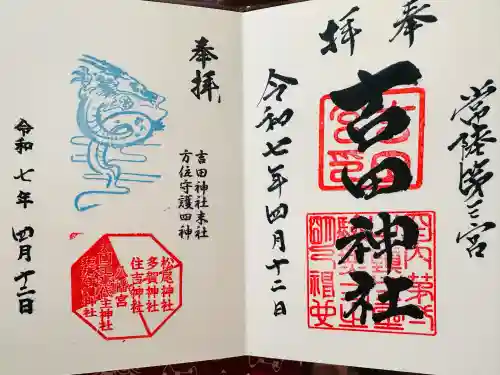 常陸第三宮
奉拝
吉田神社
令和七年四月十二日
奉拝
吉田神社末社
方位守護四神
松尾神社
多賀神社
住吉神社
八幡宮
令和七年四月十二日